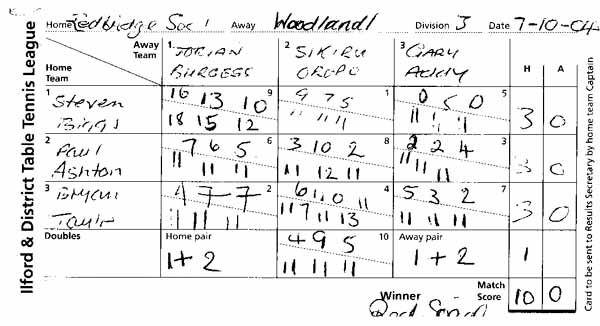 Ilford & District Table Tennis League
Home Redbridge Soc 1 Away Woodland 1 Division 3 Date 7-10-04
Away Team
Home Team
1 DORIAN BURGESS
2 SIKIRU OROPO
3 GARY ADDY
H A
1 Steven Biggs
16 13 10 9
18 15 12
9 7 5 1
11 11 11
0 5 0 5
11 11 11
3 0
2 Paul Ashton
7 6 5 6
11 11 11
3 10 2 8
11 12 11
2 2 4 3
11 11 11
3 0
3
4 7 7 2
11 11 11
6 11 0 11 4
11 7 11 13
5 3 2 7
11 11 11
3 0
Doubles
Home pair
1+2
4 9 5 10
11 11 11
Away pair
1+2
1
Winner
Match Score 10 0
Card to be sent to Results Secretary by home team Captain